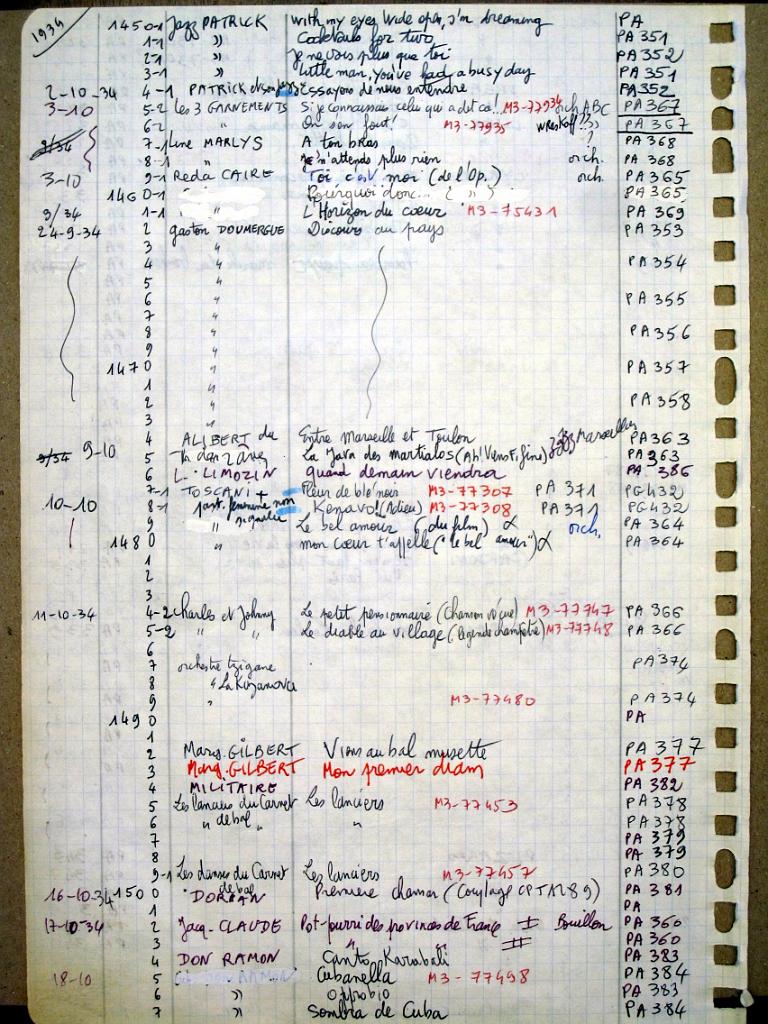 1934
1450-1 Jazz PATRICK With my eyes wide open, I'm dreaming PA
1-1 " Cocktails for two PA 351
2-1 " Je ne vois plus que toi PA 352
3-1 " Little man, you've had a busy day PA 351
2-10-34 4-1 PATRICK et son jazz Essayons de nous entendre PA 352
3-10 5-2 Les 3 GARNEMENTS Si je connaissais celui qui a dit ça! M3-77934 orch ABC PA 367
6-2 " On s'en fout! M3-77935 Wreskoff!??) PA 367
9/34 7-1 Line MARLYS A ton bras ? PA 368
8-1 " Je n'attends plus rien orch. PA 368
3-10 9-1 Reda CAIRE Toi c'est moi (de l'Op.) orch. PA 365
1460-1 Pourquoi donc... ( " ) PA 365
9/34 1-1 " L'Horizon du cœur M3-75431 PA 369
24-9-34 2 gaston DOUMERGUE Discours au pays PA 353
3 "
4 " PA 354
5 "
6 " PA 355
7 "
8 " PA 356
9 "
1470 " PA 357
1 "
2 " PA 358
3 "
4 ALIBERT du Entre Marseille et Toulon Jazz Marseillais PA 363
9/34 9-10 5 La Java des martiales (Ah! Venst. fine) PA 363
6 L. LIMOZIN quand demain viendra PA 386
7-1 TOSCANI + Fleur de blé noir M3-77307 PA 371 PG 432
10-10 8-1 part. féminine non signalée Kenavo! (Adieu) M3-77308 PA 371 PG 432
9 " Le bel amour (du film) α orch. PA 364
1480 " mon cœur t'appelle ("le bel amour") α PA 364
1
2
3
11-10-34 4-2 Charles et Johnny Le petit pensionnaire (Chanson vécue) M3-77747 PA 366
5-2 " " Le diable au village (légende champêtre) M3-77748 PA 366
6
7 orchestre tzigane PA 374
8 " La Kazanova
9 " M3-77480 PA 374
1490 PA
1
2 Marg. GILBERT Viens au bal musette PA 377
3 Marg. GILBERT Mon premier diam PA 377
4 MILITAIRE PA 382
5 Les lanciers du Carnet Les lanciers M3-77453 PA 378
6 " de bal " " PA 378
7 PA 379
8 PA 379
9-1 Les danses du Carnet de bal Les lanciers M3-77457 PA 380
16-10-34 1500 DORIAN Première chanson PA 381
1 PA
17-10-34 2 Jacq. CLAUDE Pot-pourri des provinces de France I Bouillon PA 360
3 " II PA 360
4 DON RAMON Canto Karabali PA 383
18-10 5 Cubanella M3-77498 PA 384
6 " Opprobio PA 383
7 " Sombra de Cuba PA 384